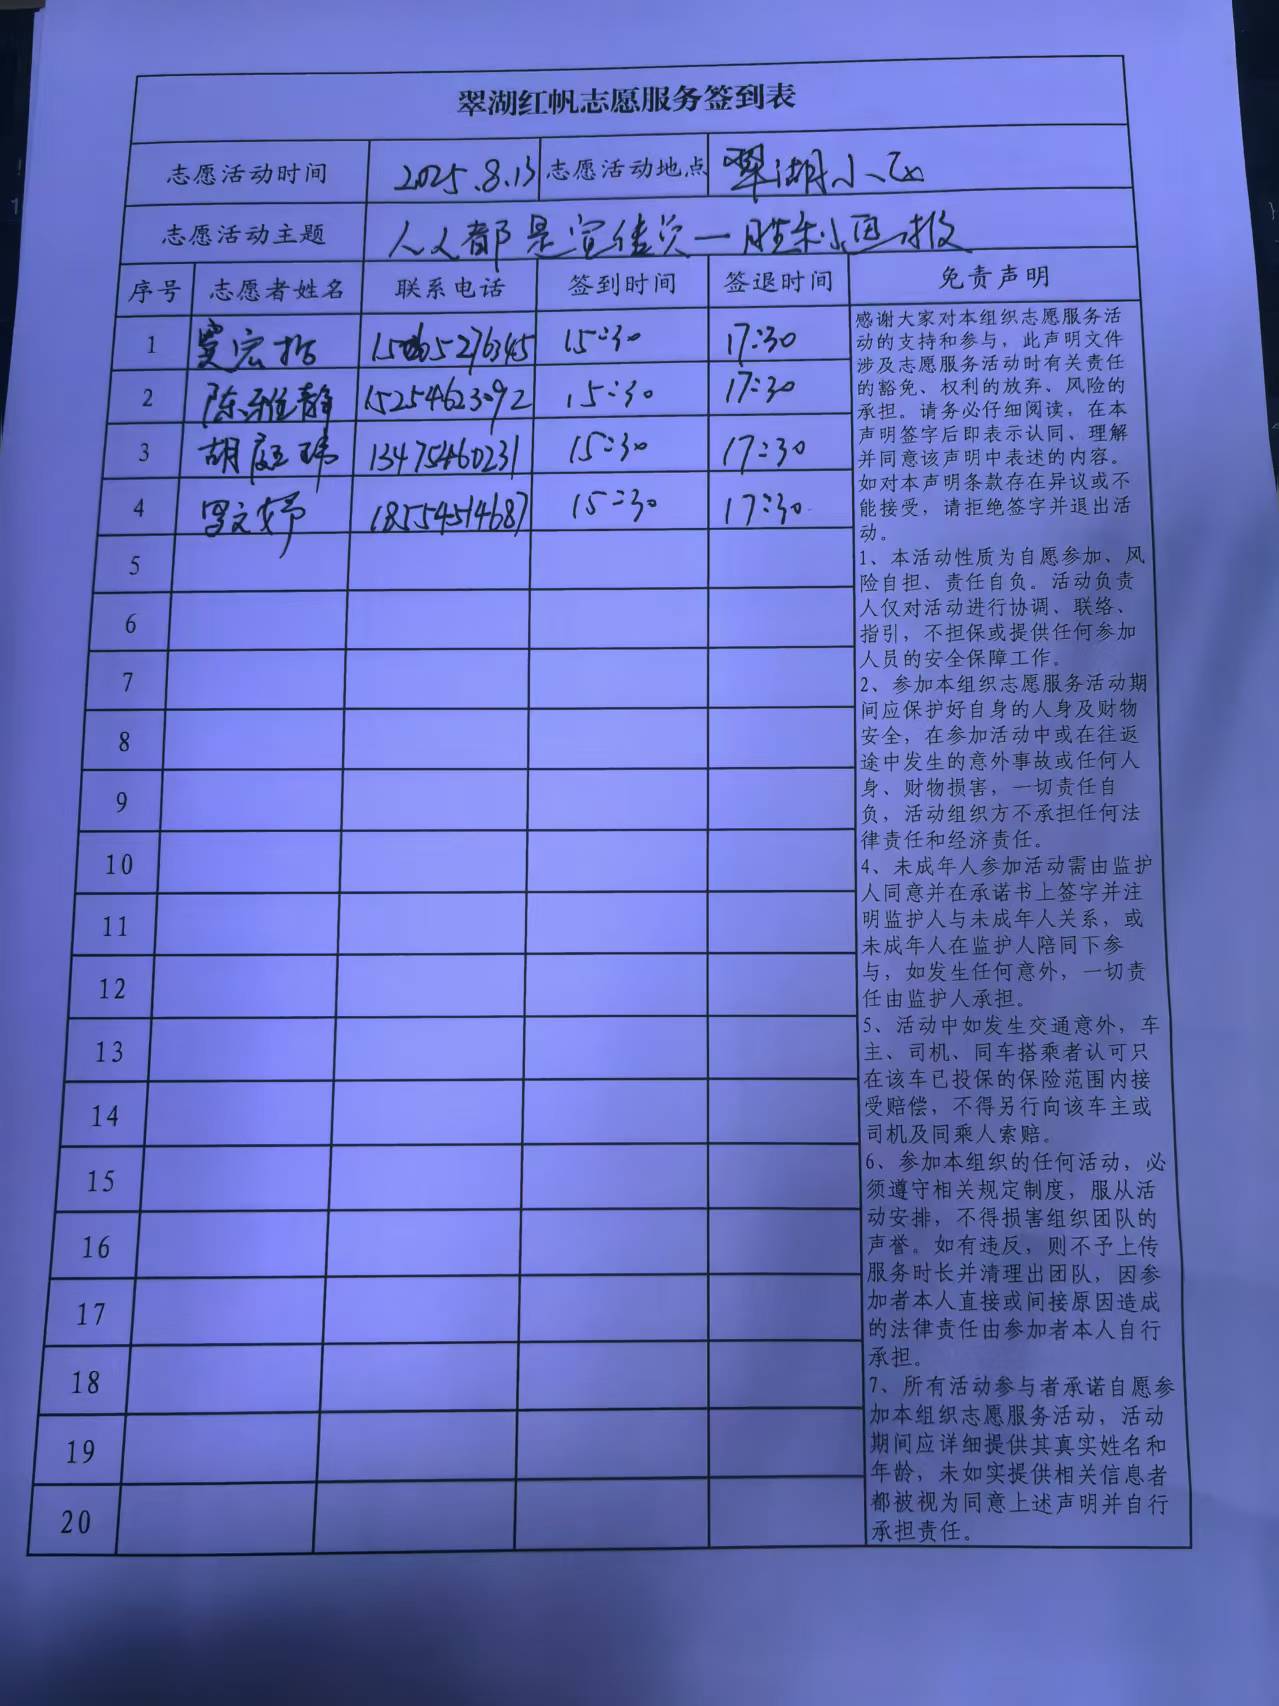 翠湖红帆志愿服务签到表
志愿活动时间 2025.8.13 志愿活动地点 翠湖小区
志愿活动主题 人人都是宣传员—胜利小区报
序号 志愿者姓名 联系电话 签到时间 签退时间 免责声明
1 宏 15:30 17:30
2 陈雅静 15254623092 15:30 17:30
3 胡庭玮 13475460231 15:30 17:30
4 罗文妤 18554514687 15:30 17:30
5
6
7
8
9
10
11
12
13
14
15
16
17
18
19
20
感谢大家对本组织志愿服务活
动的支持和参与，此声明文件
涉及志愿服务活动时有关责任
的豁免、权利的放弃、风险的
承担。请务必仔细阅读，在本
声明签字后即表示认同、理解
并同意该声明中表述的内容。
如对本声明条款存在异议或不
能接受，请拒绝签字并退出活
动。
1、本活动性质为自愿参加、风
险自担、责任自负。活动负责
人仅对活动进行协调、联络、
指引，不担保或提供任何参加
人员的安全保障工作。
2、参加本组织志愿服务活动期
间应保护好自身的人身及财物
安全，在参加活动中或在往返
途中发生的意外事故或任何人
身、财物损害，一切责任自
负，活动组织方不承担任何法
律责任和经济责任。
4、未成年人参加活动需由监护
人同意并在承诺书上签字并注
明监护人与未成年人关系，或
未成年人在监护人陪同下参
与，如发生任何意外，一切责
任由监护人承担。
5、活动中如发生交通意外，车
主、司机、同车搭乘者认可只
在该车已投保的保险范围内接
受赔偿，不得另行向该车主或
司机及同乘人索赔。
6、参加本组织的任何活动，必
须遵守相关规定制度，服从活
动安排，不得损害组织团队的
声誉。如有违反，则不予上传
服务时长并清理出团队，因参
加者本人直接或间接原因造成
的法律责任由参加者本人自行
承担。
7、所有活动参与者承诺自愿参
加本组织志愿服务活动，活动
期间应详细提供其真实姓名和
年龄，未如实提供相关信息者
都被视为同意上述声明并自行
承担责任。